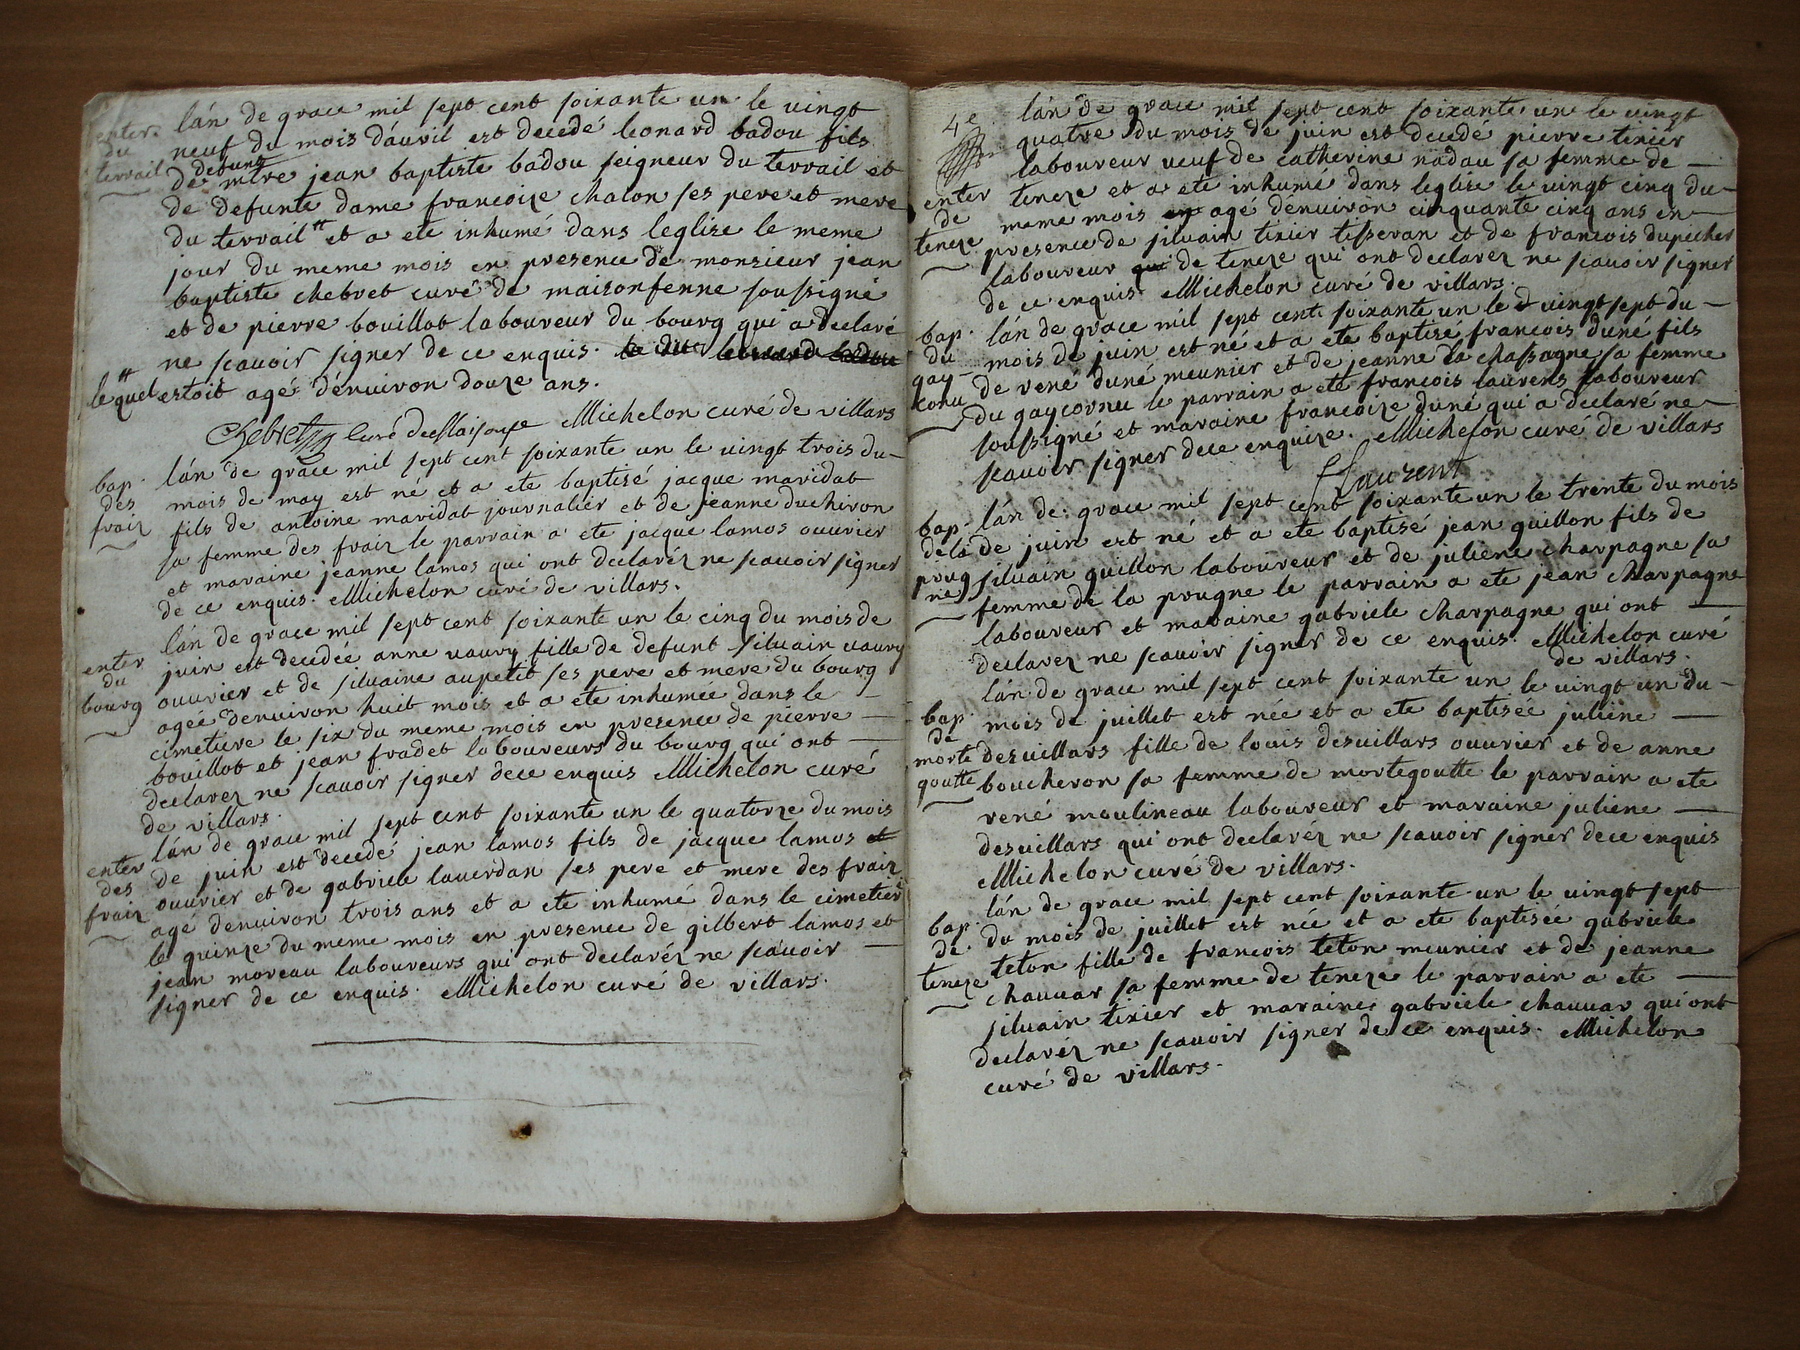 enter.
du
terrail
lán de grace mil sept cent soixante un le vingt
neuf du mois dávril est decedé leonard badou fils
defunt
de mtre jean baptiste badou seigneur du terrail et
de defunte dame francoize chalon ses pere et mere
du terrail # et a ete inhumé dans leglise le meme
jour du meme mois en presence de monsieur jean
baptiste chebret curé de maisonfenne soussigné
et de pierre bouillot laboureur du bourg qui a declaré
ne scavoir signer de ce enquis. le dit leonard badou
# le quel estoit agé dénuiron douze ans.
Chebret Curé de Michelon curé de villars
bap.
des
fraiz
lán de grace mil sept cent soixante un le vingt trois du
mois de may est né et a ete baptisé jacque maridat
fils de antoine maridat journalier et de jeanne duchiron
sa femme des fraiz le parrain a ete jacque lamos ouurier
et maraine jeanne lamos qui ont declaréz ne scauoir signer
de ce enquis. Michelon curé de villars.
enter
du
bourg
lán de grace mil sept cent soixante un le cinq du mois de
juin est decedée anne vaury fille de defunt siluain vaury
ouurier et de siluaine aupetit ses pere et mere du bourg
ageé dénuiron huit mois et a ete inhumeé dans le
cimetiere le six du meme mois en presence de pierre
bouillot et jean fradet laboureurs du bourg qui ont
declarez ne scauoir signer dece enquis Michelon curé
de villars.
enter
des
fraiz
lán de grace mil sept cent soixante un le quatorze du mois
de juin est decedé jean lamos fils de jacque lamos et
ouurier et de gabriele lauerdan ses pere et mere des fraiz
agé denuiron trois ans et a ete inhumé dans le cimetier
le quinze du meme mois en presence de gilbert lamos et
jean moreau laboureurs qui ont declaréz ne scauoir
signer de ce enquis. Michelon curé de villars.
4e
enter
de
teneze
lán de grace mil sept cent soixante un le vingt
quatre du mois de juin est decede pierre tixier
laboureur veuf de catherine nadau sa femme de
teneze et a ete inhumé dans leglise le vingt cinq du
meme mois agé dénuiron cinquante cinq ans en
presence de siluain tixier tisseran et de francois dupicher
laboureur qui de teneze qui ont declarez ne scauoir signer
de ce enquis. Michelon curé de villars.
bap.
du
gay
cornu
lán de grace mil sept cent soixante un le vingt sept du
mois de juin est né et a ete baptisé francois duné fils
de rené duné meunier et de jeanne la chassagne sa femme
du gaycornu le parrain a eté francois laurens laboureur
soussigné et maraine francoize duné qui a declaré ne
scauoir signer dece enquize. Michelon curé de villars
f laurent
bap.
dela
poug
ne
lán de grace mil sept cent soixante un le trente du mois
de juin est né et a ete baptisé jean guillon fils de
siluain guillon laboureur et de juliene charpagne sa
femme de la pougne le parrain a ete jean charpagne
laboureur et maraine gabriele charpagne qui ont
declarez ne scauoir signer de ce enquis. Michelon curé
de villars.
bap.
de
morte
goutte
lán de grace mil sept cent soixante un le vingt un du
mois de juillet est née et a ete baptiseé juliene
desvillars fille de louis desvillars ouurier et de anne
boucheron sa femme de mortegoutte le parrain a ete
rené moulineau laboureur et maraine juliene
desvillars qui ont declaréz ne scauoir signer dece enquis
Michelon curé de villars.
bap.
de
teneze
lán de grace mil sept cent soixante un le vingt sept
du mois de juillet est née et a ete baptiseé gabriele
teton fille de francois teton meunier et de jeanne
chauuar sa femme de teneze le parrain a ete
siluain tixier et maraine gabriele chauuar qui ont
declaréz ne scauoir signer de ce enquis. Michelon
curé de villars.